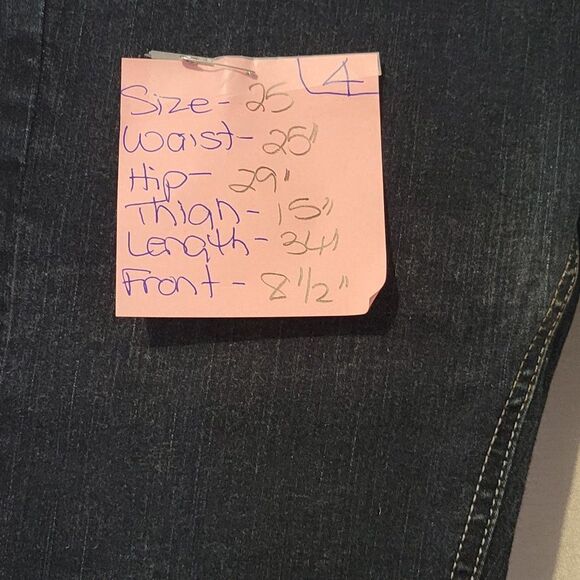 4
Size- 25
Waist- 25"
Hip- 29"
Thigh- 15"
Length- 34"
Front- 8 1/2"